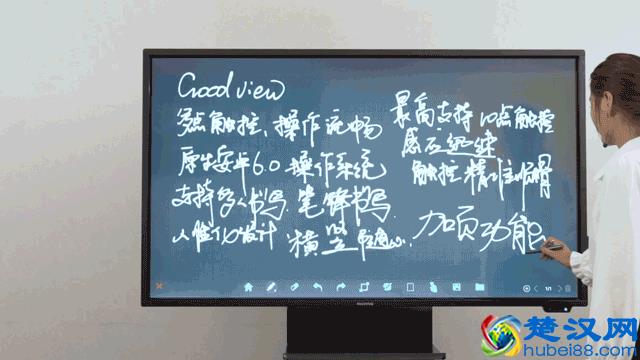 Goodview
多点触控、操作流畅
原生安卓6.0操作系统
支持多人书写.笔锋书写.
人性化设计 横竖
最高支持10点触控
感应
触控精准
加页功能
楚汉网
hubei88.com